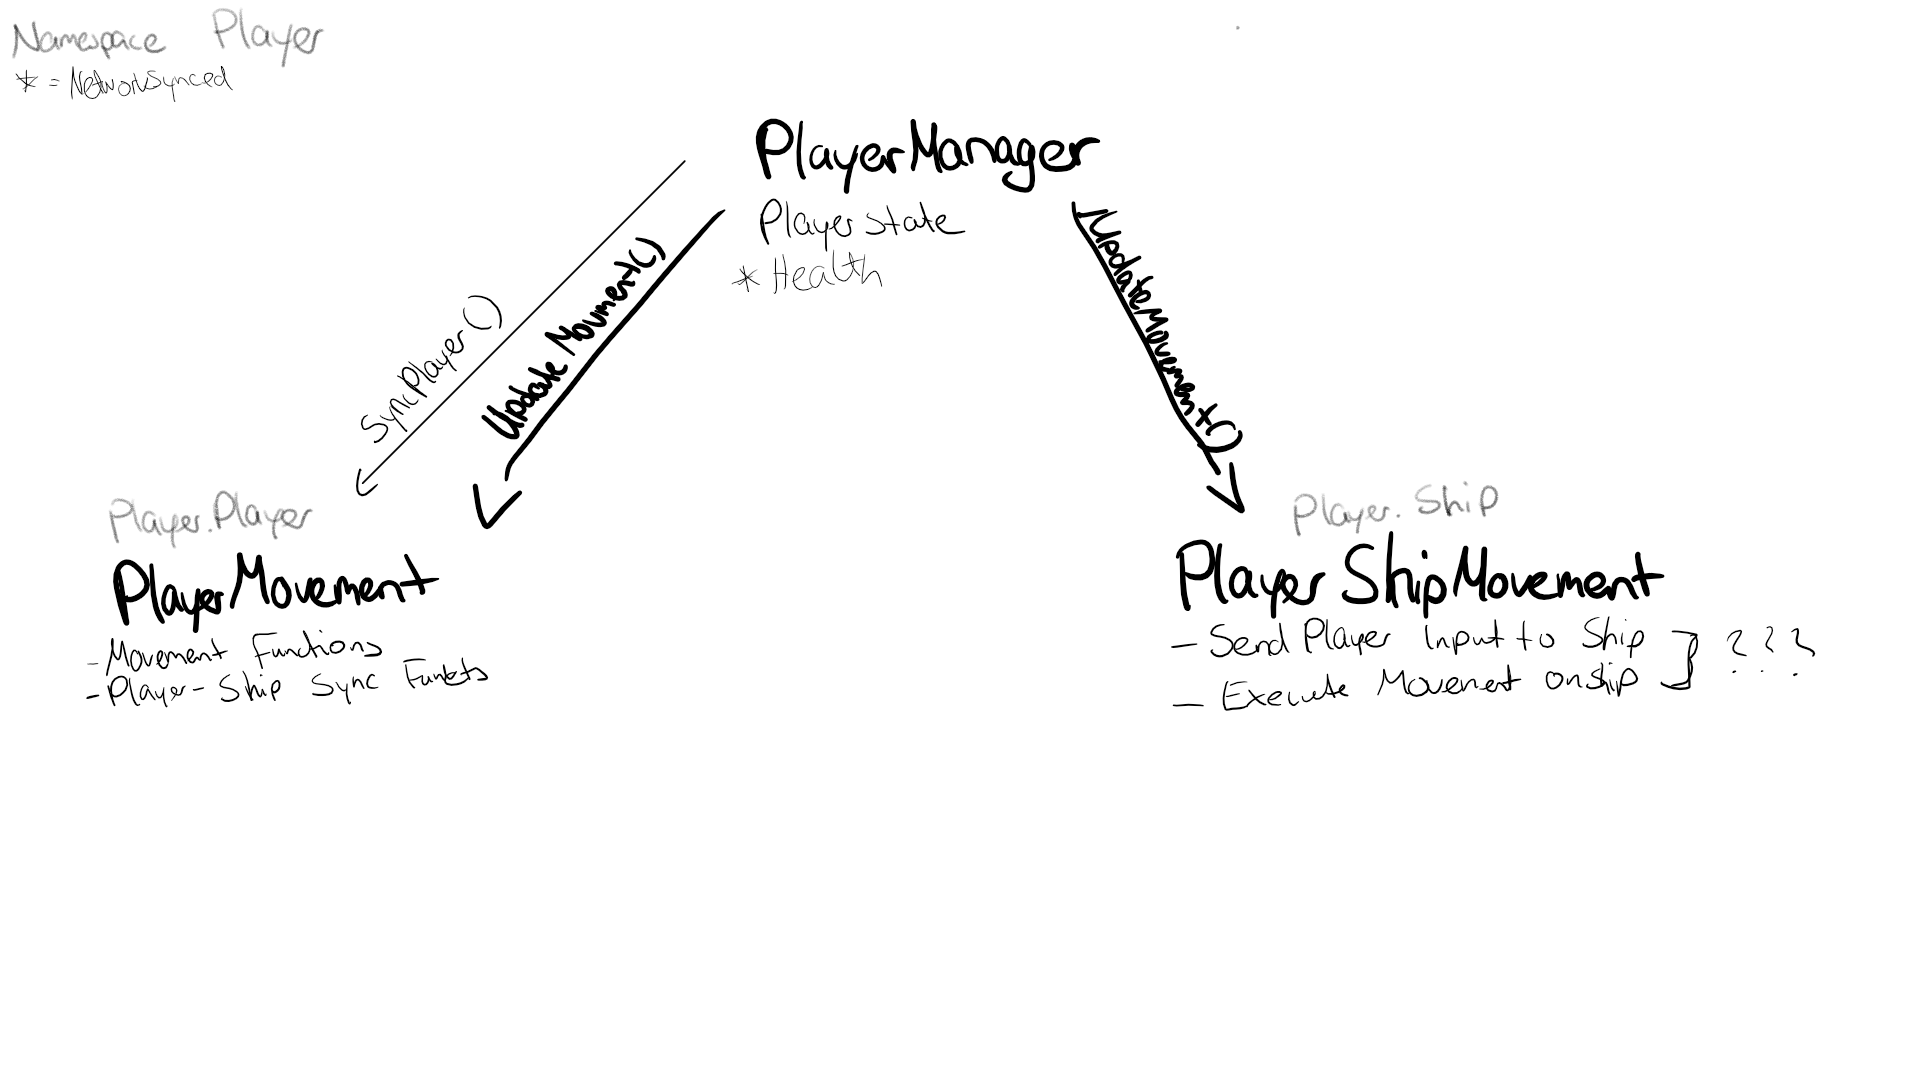 Namespace Player
* = NetworkSynced
PlayerManager
PlayerState
* Health
SyncPlayer()
Update Movment()
UpdateMovement()
Player.Player
PlayerMovement
- Movement Functions
- Player-Ship Sync
Player.Ship
Player ShipMovement
- Send Player Input to Ship
- Execute Movement on Ship
???